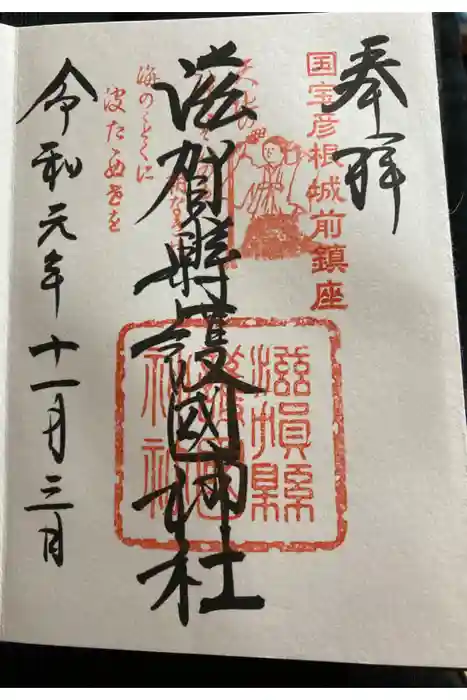 奉拝
国宝彦根城前鎮座
滋賀縣護國神社
滋賀縣護国神社
海のことくに
波たゝぬ世を
令和元年十一月三日